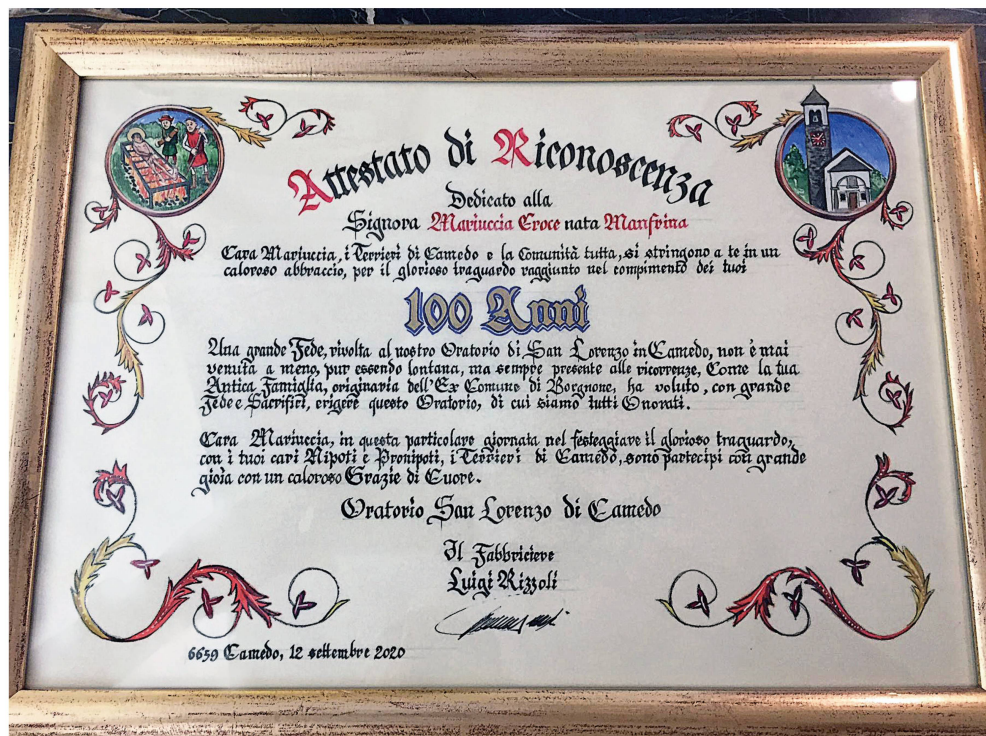 Attestato di Riconoscenza
Dedicato alla
Signora Mariuccia Croce nata Manfrina
Cara Mariuccia, i Terrieri di Camedo e la Comunità tutta, si stringono a te in un
caloroso abbraccio, per il glorioso traguardo raggiunto nel compimento dei tuoi
100 Anni
Una grande Fede, rivolta al nostro Oratorio di San Lorenzo in Camedo, non è mai
venuta a meno, pur essendo lontana, ma sempre presente alle ricorrenze, Come la tua
Antica Famiglia, originaria dell'Ex Comune di Borgnone, ha voluto, con grande
Fede e Sacrifici, erigere questo Oratorio, di cui siamo tutti Onorati.
Cara Mariuccia, in questa particolare giornata nel festeggiare il glorioso traguardo,
con i tuoi cari Nipoti e Pronipoti, i Terrieri di Camedo, sono partecipi con grande
gioia con un caloroso Grazie di Cuore.
Oratorio San Lorenzo di Camedo
Il Fabbriciere
Luigi Rizzoli
6659 Camedo, 12 settembre 2020